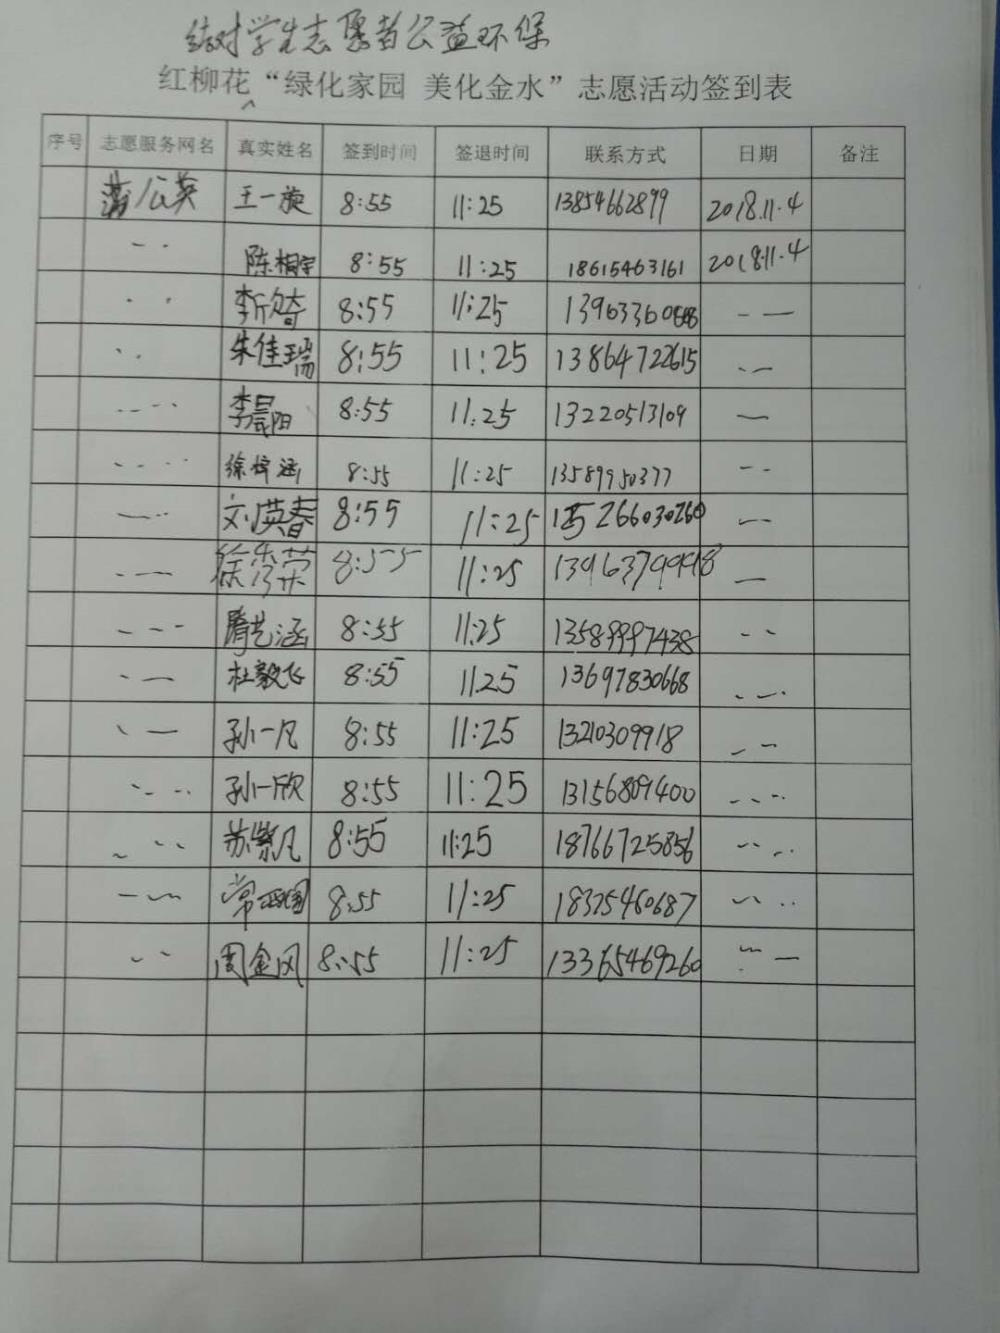 结对学生志愿者公益环保
红柳花“绿化家园 美化金水”志愿活动签到表
序号 志愿服务网名 真实姓名 签到时间 签退时间 联系方式 日期 备注
蒲公英 王一旋 8:55 11:25 13854662899 2018.11.4
陈相宇 8:55 11:25 18615463161 2018.11.4
李欣奇 8:55 11:25
朱佳瑞 8:55 11:25 13864722615
李晨阳 8:55 11:25 13220513109
徐梓涵 8:55 11:25 13589950377
刘英春 8:55 11:25 15266030260
徐秀荣 8:55 11:25 13963799998
腾艺涵 8:55 11:25 13589997438
杜毅飞 8:55 11:25 13697830668
孙一凡 8:55 11:25 13210309918
孙一欣 8:55 11:25 13156809400
苏紫凡 8:55 11:25 18766725856
常 8:55 11:25 18325460687
周金风 8:55 11:25 13365469260